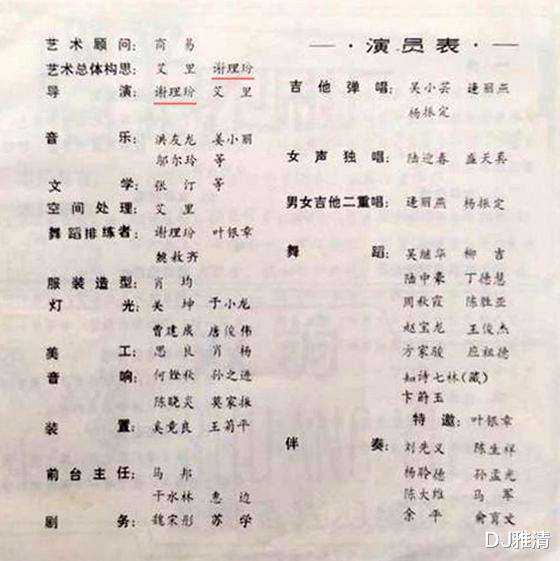 艺术顾问：商易
艺术总体构思：艾里 谢理玢
导演：谢理玢 艾里
音乐：洪友龙 姜小丽
邬尔玲 等
文学：张汀 等
空间处理：艾里
舞蹈排练者：谢理玢 叶银章
魏敖齐
服装造型：肖均
灯光：吴坤 于小龙
曹建成 唐俊伟
美工：思良 肖杨
音响：何铨秋 孙之进
陈晓炎 莫家振
装置：奚竟良 王菊平
前台主任：马邦
干水林 惠边
剧务：魏宋彤 苏学
—·演员表·—
吉他弹唱：吴小芸 逢丽燕
杨振定
女声独唱：陆迎春 盛天真
男女吉他二重唱：逢丽燕 杨振定
舞蹈：吴继华 柳吉
陆中豪 丁德慧
周秋霞 陈胜亚
赵宝龙 王俊杰
方家骏 应祖德
知诗七林(藏)
卞蔚玉
特邀：叶银章
伴奏：刘先义 陈生祥
杨聆德 孙孟光
陈大雄 马军
余平 俞育文
DJ雅清